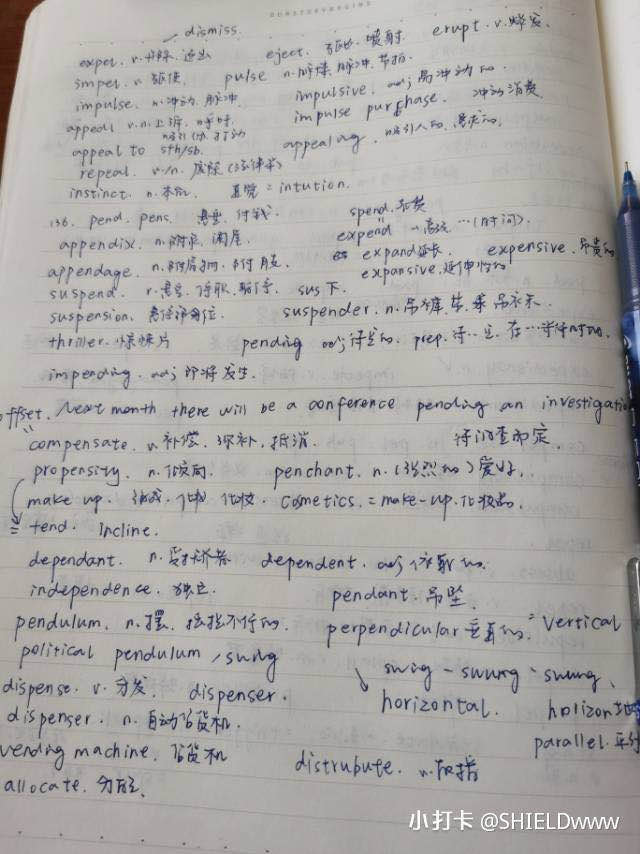 dismiss.
expel. v. 开除. 逐出 eject. 驱逐. 喷射. erupt. v. 爆发.
impel. v. 驱使. pulse n. 脉搏. 脉冲. 节拍.
impulse. n. 冲动. 脉冲 impulsive. adj 易冲动的.
appeal v.n. 上诉. 呼吁. impulse purchase. 冲动消费
吸引(力). 打动
appeal to sth/sb. appealing. 吸引人的.
repeal. v./n. 废除(法律等)
instinct. n. 本能. 直觉 = intution.
136. pend. pens. 悬垂. 付钱. spend. 花费
appendix. n. 附录. 阑尾. expend
appendage. n. expand 延长. expensive. 昂贵的
suspend. v. 悬垂. 停职. 暂停. sus 下. expansive. 延伸性的
suspension. suspender. n. 吊裤
thriller. 惊悚片 pending adj 待定的. prep.
impending. adj 即将发生.
offset. Next month there will be a conference pending an investigation
compensate. v. 补偿. 弥补. 抵消. 待调查而定.
propensity. n. 倾向. penchant. n. (强烈的) 爱好.
make up. 组成. 化妆. cosmetics. = make-up. 化妆品.
tend. incline.
dependant. n. 受抚养者 dependent. adj 依赖的.
independence. 独立. pendant. 吊坠.
pendulum. n. 摆. 摇摆不行的. perpendicular 垂直的. = vertical
political pendulum / swing swing - swung - swung.
dispense. v. 分发. dispenser. horizontal.
dispenser. n. 自动售货机. parallel.
vending machine. 售货机 distrubute.
allocate. 分配.
小打卡 @SHIELDwww